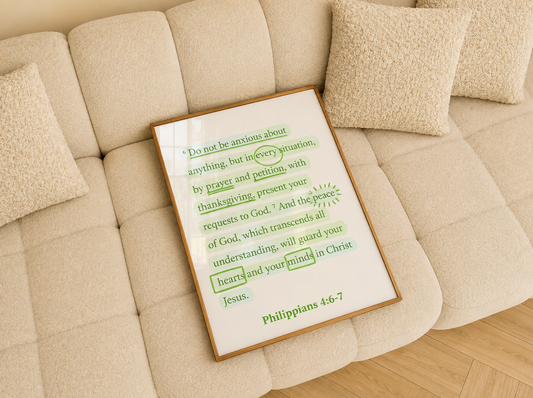 ⁶ Do not be anxious about
anything, but in every situation,
by prayer and petition, with
thanksgiving, present your
requests to God. ⁷ And the peace
of God, which transcends all
understanding, will guard your
hearts and your minds in Christ
Jesus.
Philippians 4:6-7